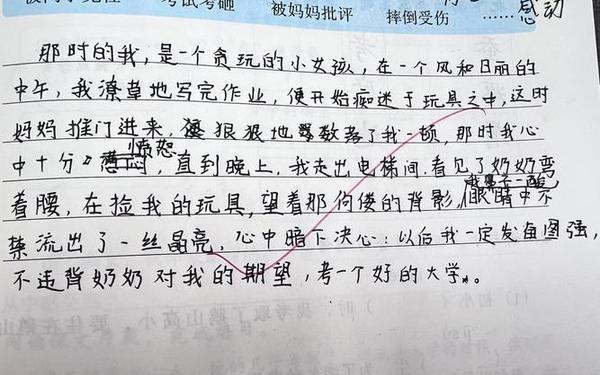 考试考砸 被妈妈批评 摔倒受伤 ……感动
那时的我，是一个贪玩的小女孩，在一个风和日丽的
中午，我潦草地写完作业，便开始痴迷于玩具之中，这时
妈妈推门进来，狠狠地数落了我一顿，那时我心
愤怒
中十分，直到晚上，我走出电梯间，看见了奶奶弯
我鼻子一酸
着腰，在捡我的玩具，望着那佝偻的背影，眼睛中不
禁流出了一丝晶亮，心中暗下决心：以后我一定发奋图强，
不违背奶奶对我的期望，考一个好的大学。